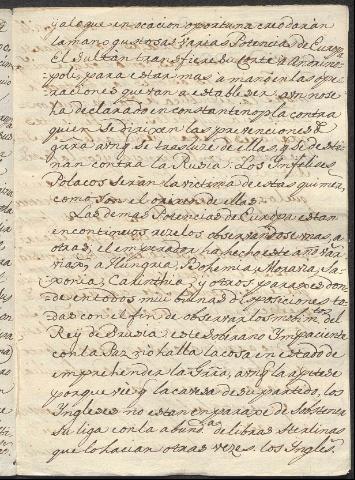 y a lo que en ocacion oportuna creo daran
la mano gustosas varias Potencias de Europa
El Sultan transfiere su Corte a Andrino
poli, para estar mas a mano en las ope
raciones que van a establecer. aun no se
ha declarado en constantinopla contra
quien se dirigen las prevenciones de
grra aunq se trasluce de ellas, q se desti
nan contra la Rusia. Los Infelises
Polacos seran la victima de estas quimer.s
como son el origen de ellas.
Las demas Potencias de Europa estan
en continuos recelos observandose unas, a
otras, el emperador ha hecho este año varias
a Hungria, Bohemia, Moravia, Sa
xonia, Carinthia, y otros parages don
de en todos mui buenas disposiciones to
das con el fin de observar los mobim.tos
del Rey de Prusia: este Soberano Impaciente
con la Paz no halla la cosa en estado de
emprehender la Grra, aunq la apetese
porque vé q la cavesa de su partido, los
Ingleses no estan en parage de sobstener
su liga con la abund.a de libras sterlinas
que lo hacian otras vezes. los Ingles.s